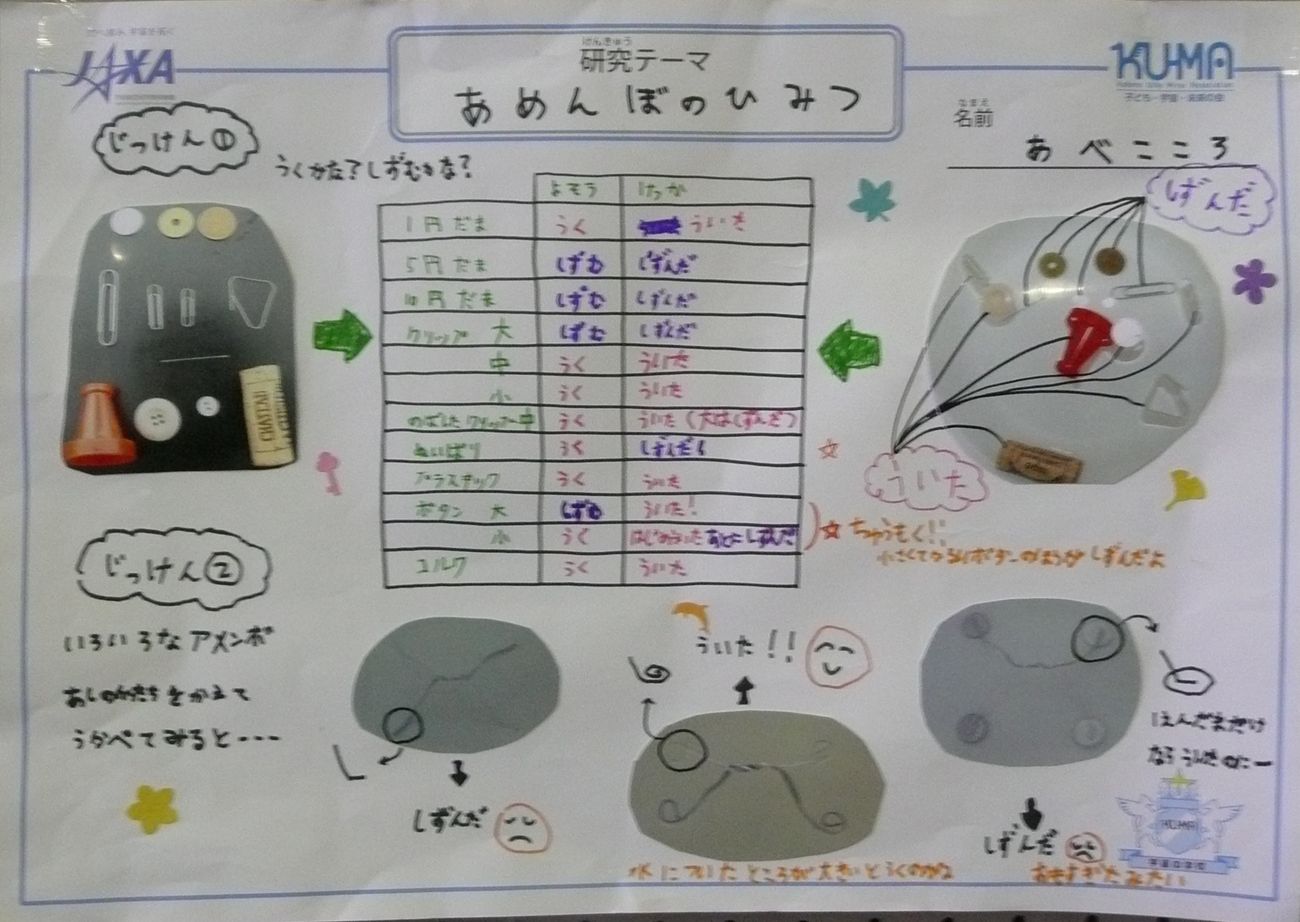 JAXA
けんきゅう
研究テーマ
あめんぼのひみつ
KU-MA
子ども・宇宙・未来の会
なまえ
名前
あべこころ
じっけん①
うくかな?しずむかな?
よそう けっか
1円だま うく ういた
5円だま しずむ しずんだ
10円だま しずむ しずんだ
クリップ 大 しずむ しずんだ
中 うく ういた
小 うく ういた
のばしたクリップ中 うく ういた(大はしずんだ)
ぬいばり うく しずんだ!
プラスチック うく ういた
ボタン 大 しずむ ういた!
小 うく はじめういた あとにしずんだ
コルク うく ういた
しずんだ
ういた
CHATEAU
☆ちゅうもく!!
小さくてかるいボタンのほうがしずんだよ
じっけん②
いろいろなアメンボ
あしのかたちをかえて
うかべてみると・・・
しずんだ
ういた!!
水についたところが大きいとうくのかな
1えんだまだけ
ならういたのにー
しずんだ
おもすぎたみたい
KUMA